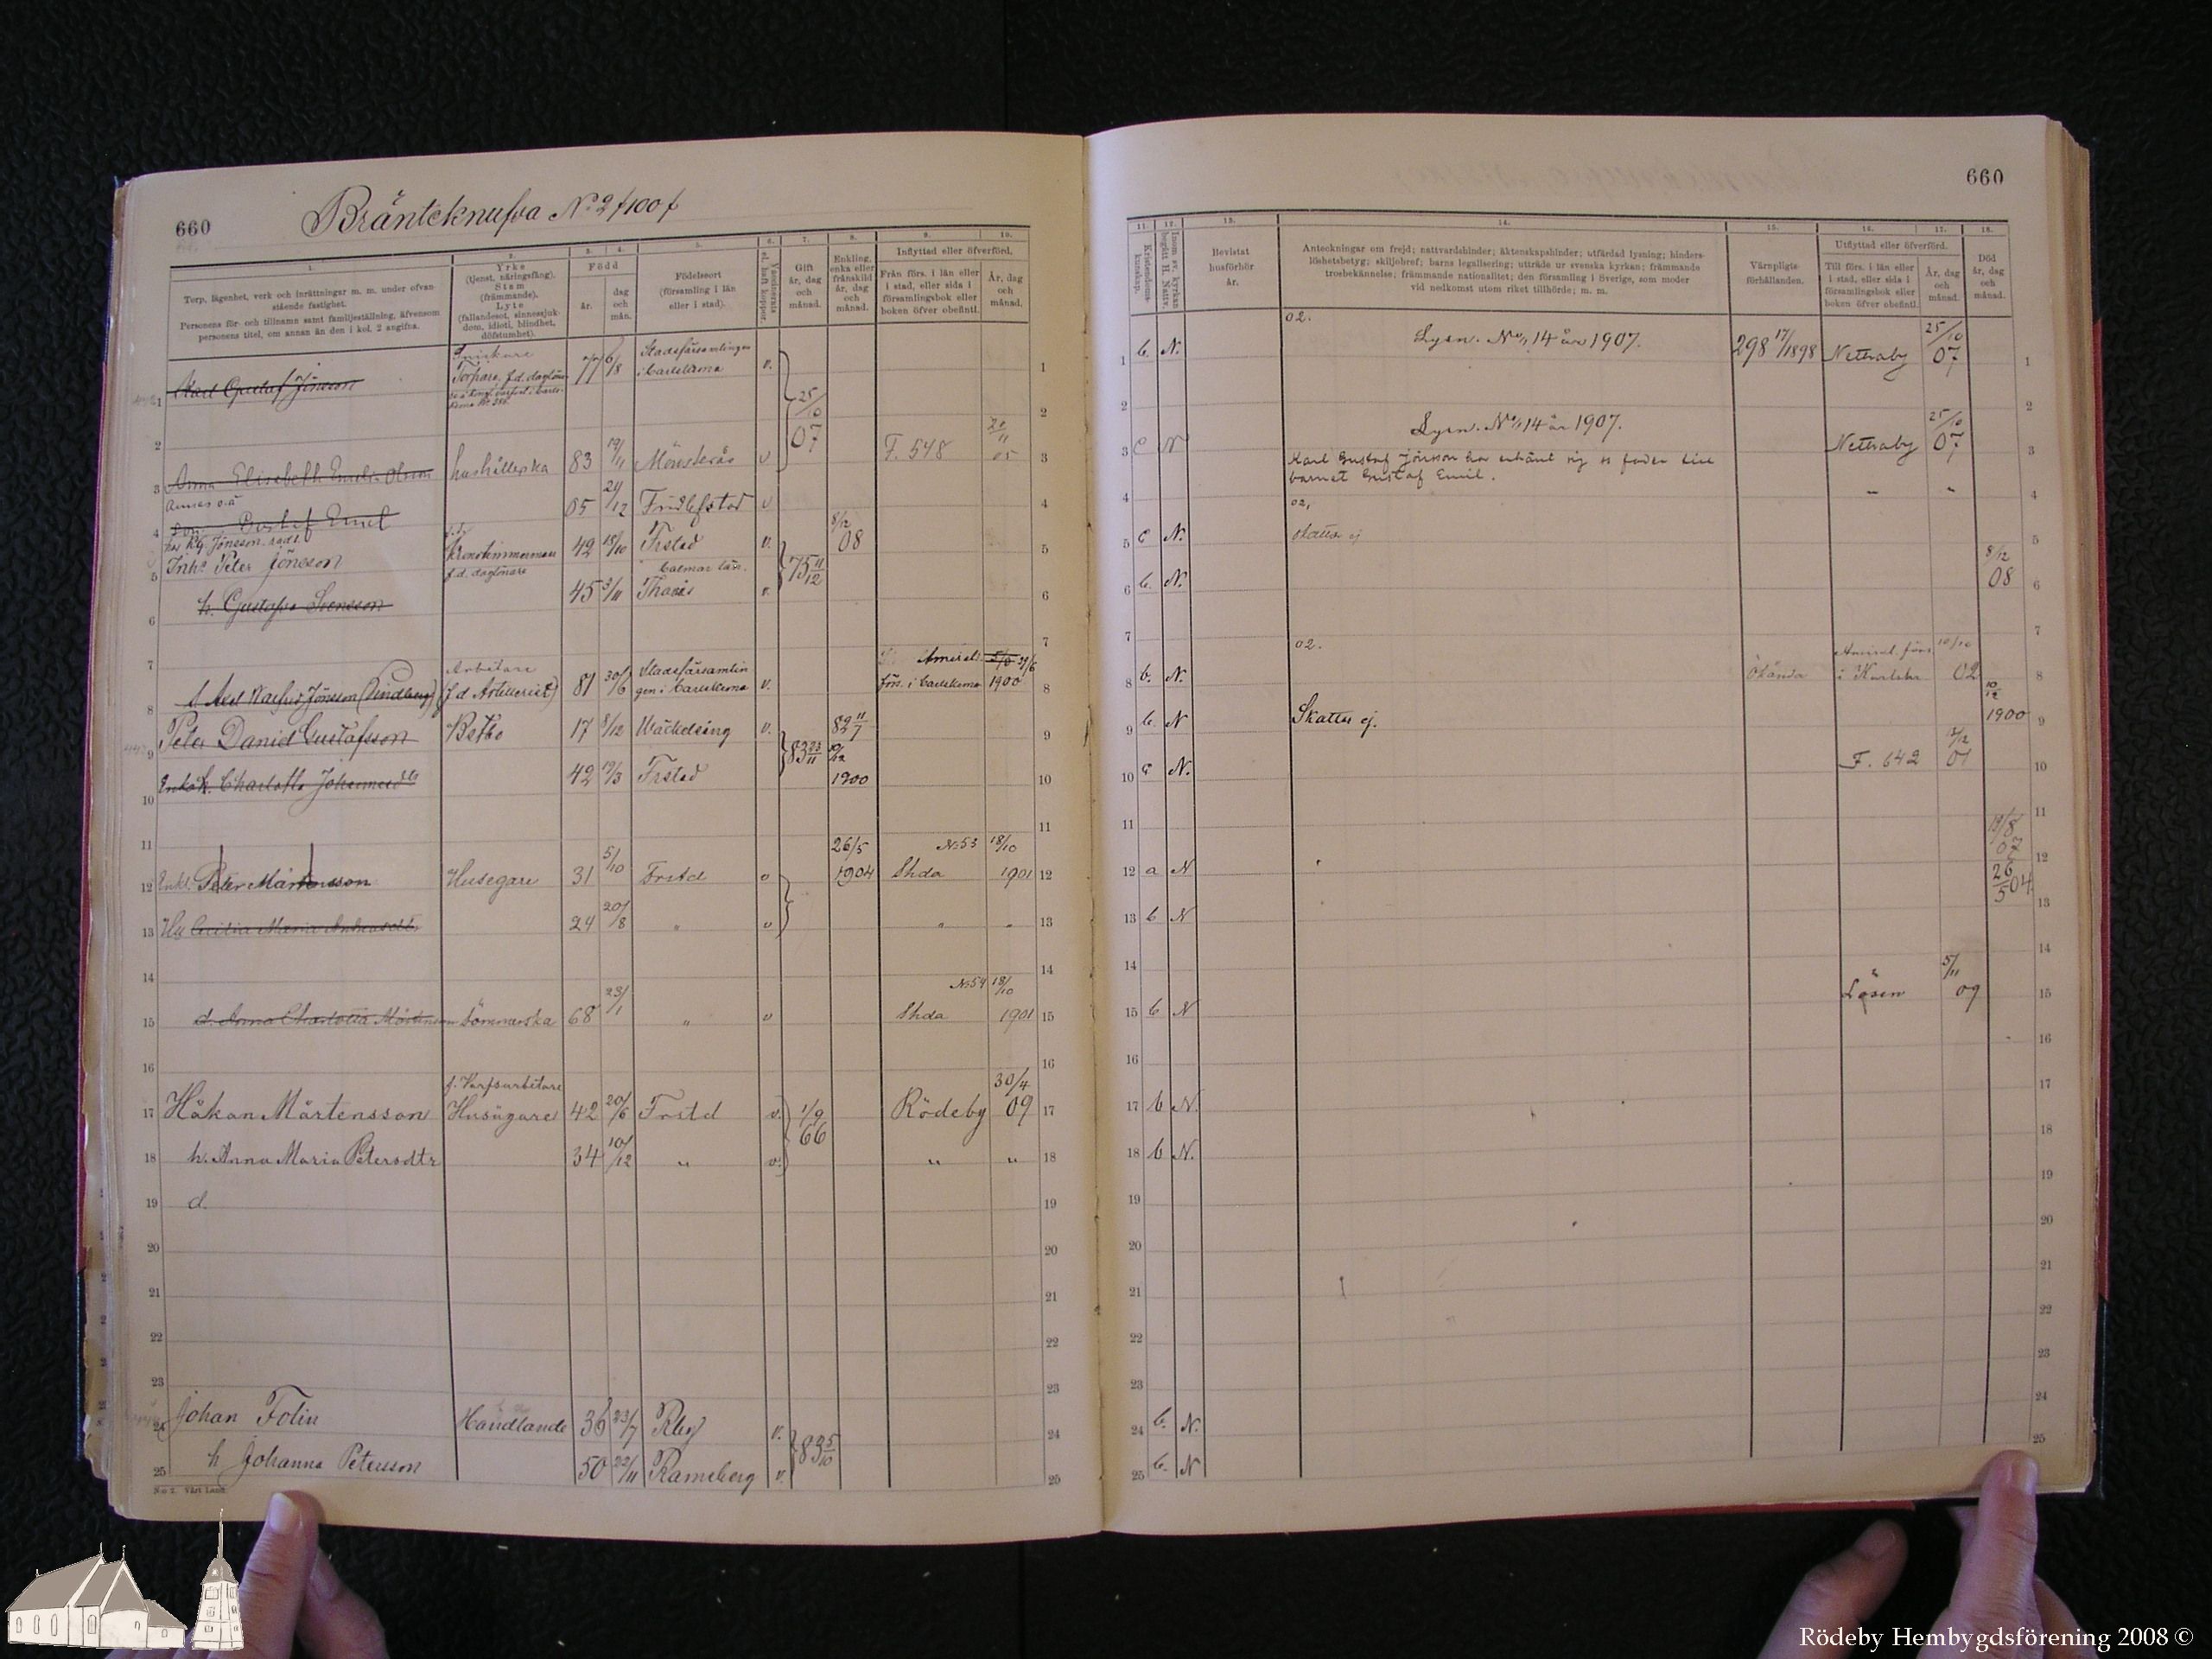 660
Bränteknufva No 2 f 100 f
1.
2.
3.
4.
5.
6.
7.
8.
9.
10.
Torp, lägenhet, verk och inrättningar m. m. under ofvan-
stående fastighet.
Personens för- och tillnamn samt familjeställning, äfvensom
personens titel, om annan än den i kol. 2 angifna.
Yrke
(tjenst, näringsfång).
Stam
(främmande).
Lyte
(fallandesot, sinnessjuk-
dom, idioti, blindhet,
döfstumhet).
Född
år.
dag
och
mån.
Födelseort
(församling i län
eller i stad).
Vaccinerats
el. haft koppor.
Gift
år, dag
och
månad.
Enkling,
enka eller
frånskild
år, dag
och
månad.
Inflyttad eller öfverförd.
Från förs. i län eller
i stad, eller sida i
församlingsbok eller
boken öfver obefintl.
År, dag
och
månad.
1 Karl Gustaf Jönsson Snickare Torpare, f.d. 77 6/18 Stadsförsamlingen i Carlskrona v. 25/10 07
3 Anna Elisabeth Emilia Olsson hushållerska 83 19/11 Mönsterås v F. 548 20/11 05
Annas o.ä
4 son Gustaf Emil 05 21/12 Fridlefstad v
5 Inhs Peter Jönsson f.d. Kronotimmerman f.d. daglönare 42 18/10 Frstad v. 75 11/12 8/12 08
Calmar län.
6 h. Gustafva Svensson 45 3/11 v.
8 Axel Warfrid Jönsson (Lindberg) Arbetare (f.d. Artillerist) 81 30/6 Stadsförsamlingen i Carlskrona v. Amiral. förs. i Carlskrona 29/6 1900
9 Peter Daniel Gustafsson 17 8/12 Wäckelsång v. 83 23/11 82 11/7
10 Enka h. Charlotta Johannesd:tr 42 19/3 Frstad 10/12 1900
12 Enkl. Peter Mårtensson Husegare 31 5/10 Frstd v 26/5 1904 No 53 Shda 18/10 1901
13 Hu Cecilia Maria 24 20/8 " v " "
15 d. Anna Charlotta Mårtensson Sömmerska 68 23/1 " v No 54 Shda 18/10 1901
f. Varfsarbetare
17 Håkan Mårtensson Husägare 42 20/6 Frstd v. 1/9 66 Rödeby 30/4 09
18 h. Anna Maria Petersdtr 34 10/12 " v. " "
19 d.
20
21
22
23
24 Johan Folin Handlande 36 23/7 Rby v. 83 5/10
25 h Johanna Petersson 50 22/11 Ramsberg v.
660
11.
12.
13.
14.
15.
16.
17.
18.
Kristendoms-
kunskap.
Inom sv. kyrkan
begått H. Nattv.
Bevistat
husförhör
år.
Anteckningar om frejd; nattvardshinder; äktenskapshinder; utfärdad lysning; hinders-
löshetsbetyg; skiljobref; barns legalisering; utträde ur svenska kyrkan; främmande
trosbekännelse; främmande nationalitet; den församling i Sverige, som moder
vid nedkomst utom riket tillhörde; m. m.
Värnpligts-
förhållanden.
Utflyttad eller öfverförd.
Till förs. i län eller
i stad, eller sida i
församlingsbok eller
boken öfver obefintl.
År, dag
och
månad.
Död
år, dag
och
månad.
02.
1 b. N. Lysn. No 14 år 1907. 298 17/1898 Nettraby 25/10 07
2
Lysn. No 14 år 1907.
3 c N Karl Gustaf Jönsson har erkänt sig ss fader till Nettraby 25/10 07
barnet Gustaf Emil.
4 02, " "
5 c N. skattar ej
6 b. N. 8/12 08
7 02.
8 b. N. Okända Amiral. förs i Karlskr 10/10 02
9 b. N Skattar ej. 10/12 1900
10 c N. F. 642 01
11
12 a N
13 b N 26/5 04
14
15 b N Lösen 5/11 09
16
17 b N.
18 b N.
19
20
21
22
23
24 b. N.
25 b. N
Rödeby Hembygdsförening 2008 ©